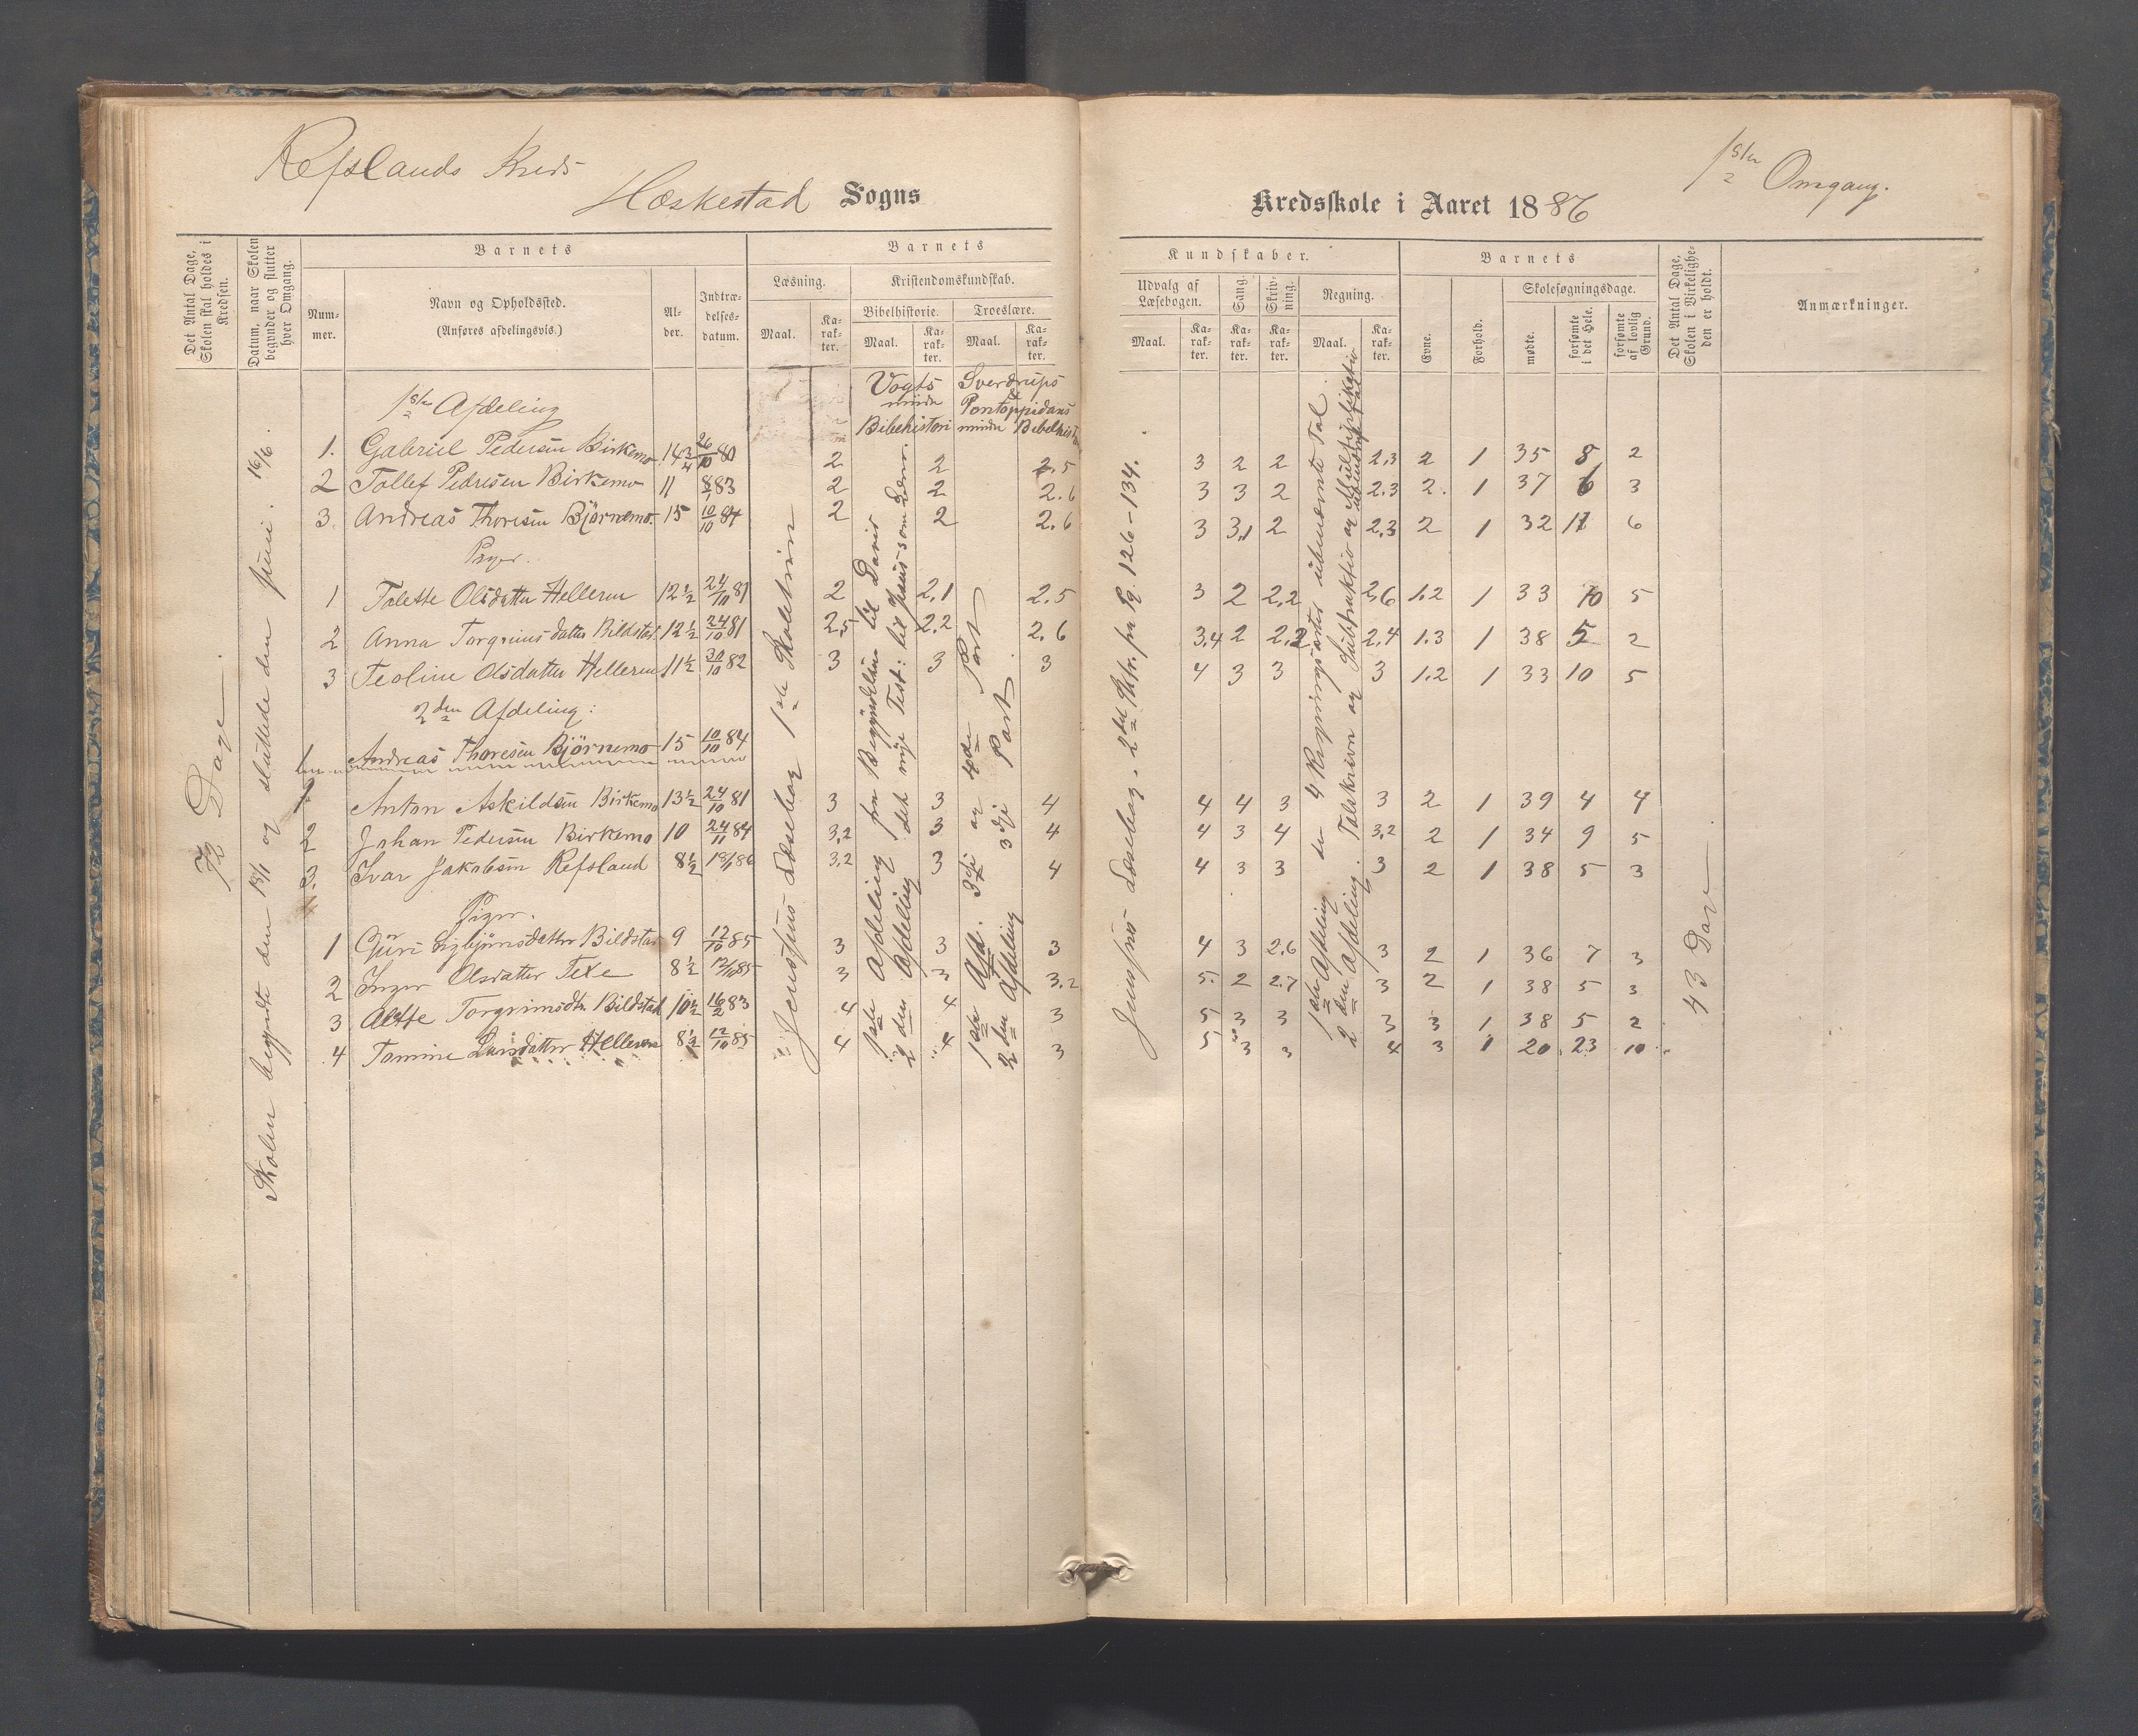 Refslands Kreds
Heskestad Sogns
Kredsskole i Aaret 1886
1ste Omgang.
Det Antal Dage, Skolen skal holdes i Kredsen.
Datum, naar Skolen begynder og slutter hver Omgang.
Barnets
Nummer.
Navn og Opholdssted.
(Anføres afdelingsvis.)
Alder.
Indtrædelsesdatum.
Barnets
Læsning.
Maal.
Karakter.
Kristendomskundskab.
Bibelhistorie.
Maal.
Karakter.
Troeslære.
Maal.
Karakter.
Kundskaber.
Udvalg af Læsebogen.
Maal.
Karakter.
Sang.
Karakter.
Skrivning.
Karakter.
Regning.
Maal.
Karakter.
Barnets
Evne.
Forhold.
Skolesøgningsdage.
mødte.
forsømte i det Hele.
forsømte af lovlig Grund.
Det Antal Dage, Skolen i Virkeligheden er holdt.
Anmærkninger.
72 Dage.
Skolen begyndte den 18/1 og sluttede den Juni. 16/6.
Vogts mindre Bibelhistori
Sverdrups & Pontoppidans mindre
1ste Afdeling
1. Gabriel Pedersen Birkemo 14 3/4 26/10 80 2 2 2.5 3 2 2 2.3 2 1 35 8 2
2 Tollef Pedersen Birkemo 11 83 2 2 2.6 3 3 2 2.3 2. 1 37 6 3
3. Andreas Thoresen Björnemo. 15 10/10 84 2 2 2.6 3 3,1 2 2,3 2 1 32 11 6
Piger.
1 Tolette Olsdatter Helleren 12 1/2 24/10 81 2 2.1 2.5 3 2 2,2 2,6 1.2 1 33 10 5
2 Anna Torgrimsdatter Bildstad 12 1/2 24/10 81 2,5 2.2 2.6 3,4 2 2,2 2,4 1.3 1 38 5 2
3 Teoline Olsdatter Helleren 11 1/2 30/10 82 3 3 3 4 3 3 3 1.2 1 33 10 5
2den Afdeling:
1 Andreas Thoresen Björnemo 15 10/10 84
1 Anton Askildsen Birkemo 13 1/2 24/10 81 3 3 4 4 4 3 3 2 1 39 4 4
2 Johan Pedersen Birkemo 10 24/11 84 3,2 3 4 4 3 4 3,2 2 1 34 9 5
3. Ivar Jakobsen Refsland 8 1/2 18/1 86 3,2 3 4 4 3 3 3 2 1 38 5 3
Piger.
1 Guri Bildstad 9 12/10 85 3 3 3 4 3 2.6 3 2 1 36 7 3
2 Inger Olsdatter Texe 8 1/2 12/10 85 3 3 3.2 5. 2 2.7 3 2 1 38 5 3
3 Alette Torgrimsdtr Bildstad 10 1/2 16/2 83 4 4 3 5 3 3 3 3 1 38 5 2
4 Tomine Larsdatter Helleren 8 1/2 12/10 85 4 4 3 5 3 3 4 3 1 20 23 10
Jenssens Læsebog 1ste Skoletrin
1ste Afdeling fra Begyndelsen til David
2den Afdeling det nye Test: til Jesus som
1ste Afd. 3dje og 4de Part
2den Afdeling 3dje Part
Jenssens Læsebog. 2det Sktr. fra Pg. 126-134.
1ste Afdeling de 4 Regningsarter ubenævnte Tal.
2den Afdeling. Talskrivn og Subtraktio og Multiplikatio
43 Dage